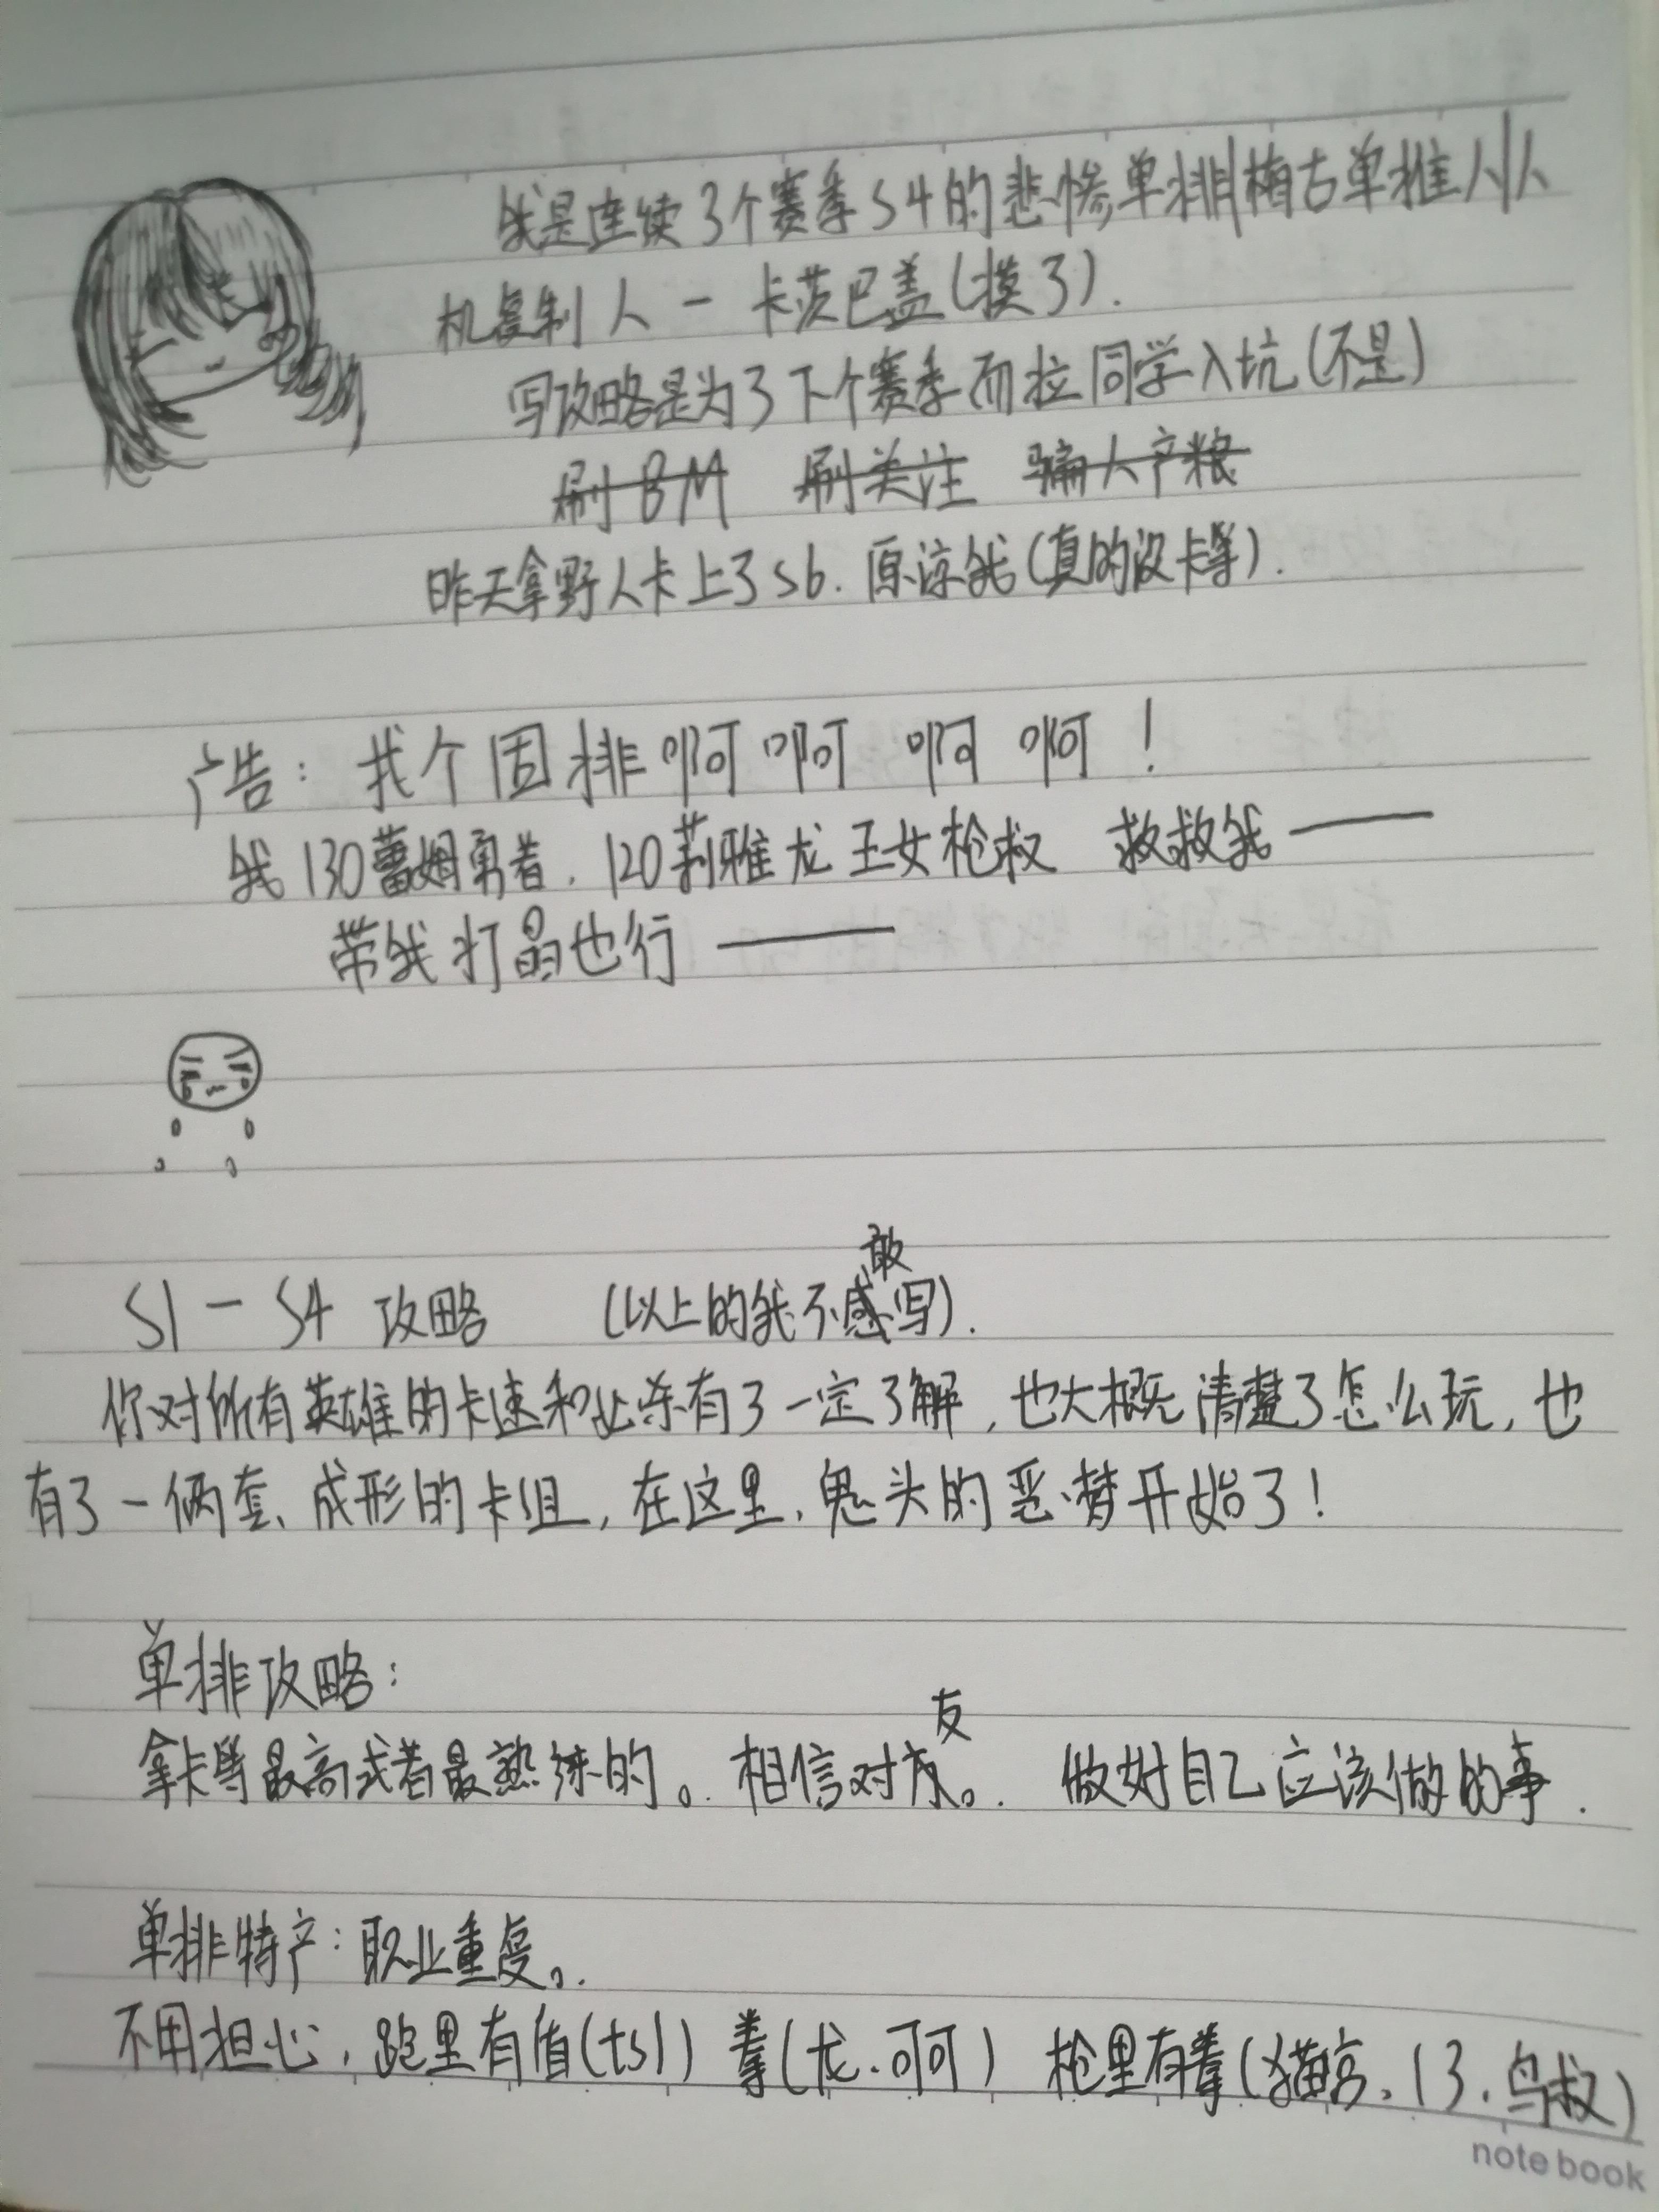 我是连续3个赛季S4的悲惨单排梅古单推人从
机复制人一卡茨巴盖(摸了).
写攻略是为了下个赛季而拉同学入坑(不是)
刷BM 刷关注 骗人产粮
昨天拿野人卡上了S6.原谅我(真的没卡等).
广告:找个固排啊啊啊啊!
我130蕾姆勇者.120莉雅龙王女枪叔 救救我——
带我打晶也行——
S1-S4攻略 (以上的我不敢写).
你对所有英雄的卡速和必杀有了一定了解,也大概清楚了怎么玩,也
有了一俩套、成形的卡组,在这里,鬼头的恶梦开始了!
单排攻略:
拿卡等最高或者最熟练的。相信对友。 做好自己应该做的事.
单排特产:职业重复。
不用担心,跑里有值(ts1)拳(龙.可可) 枪里有拳(猫宫.13.鸟叔)
notebook